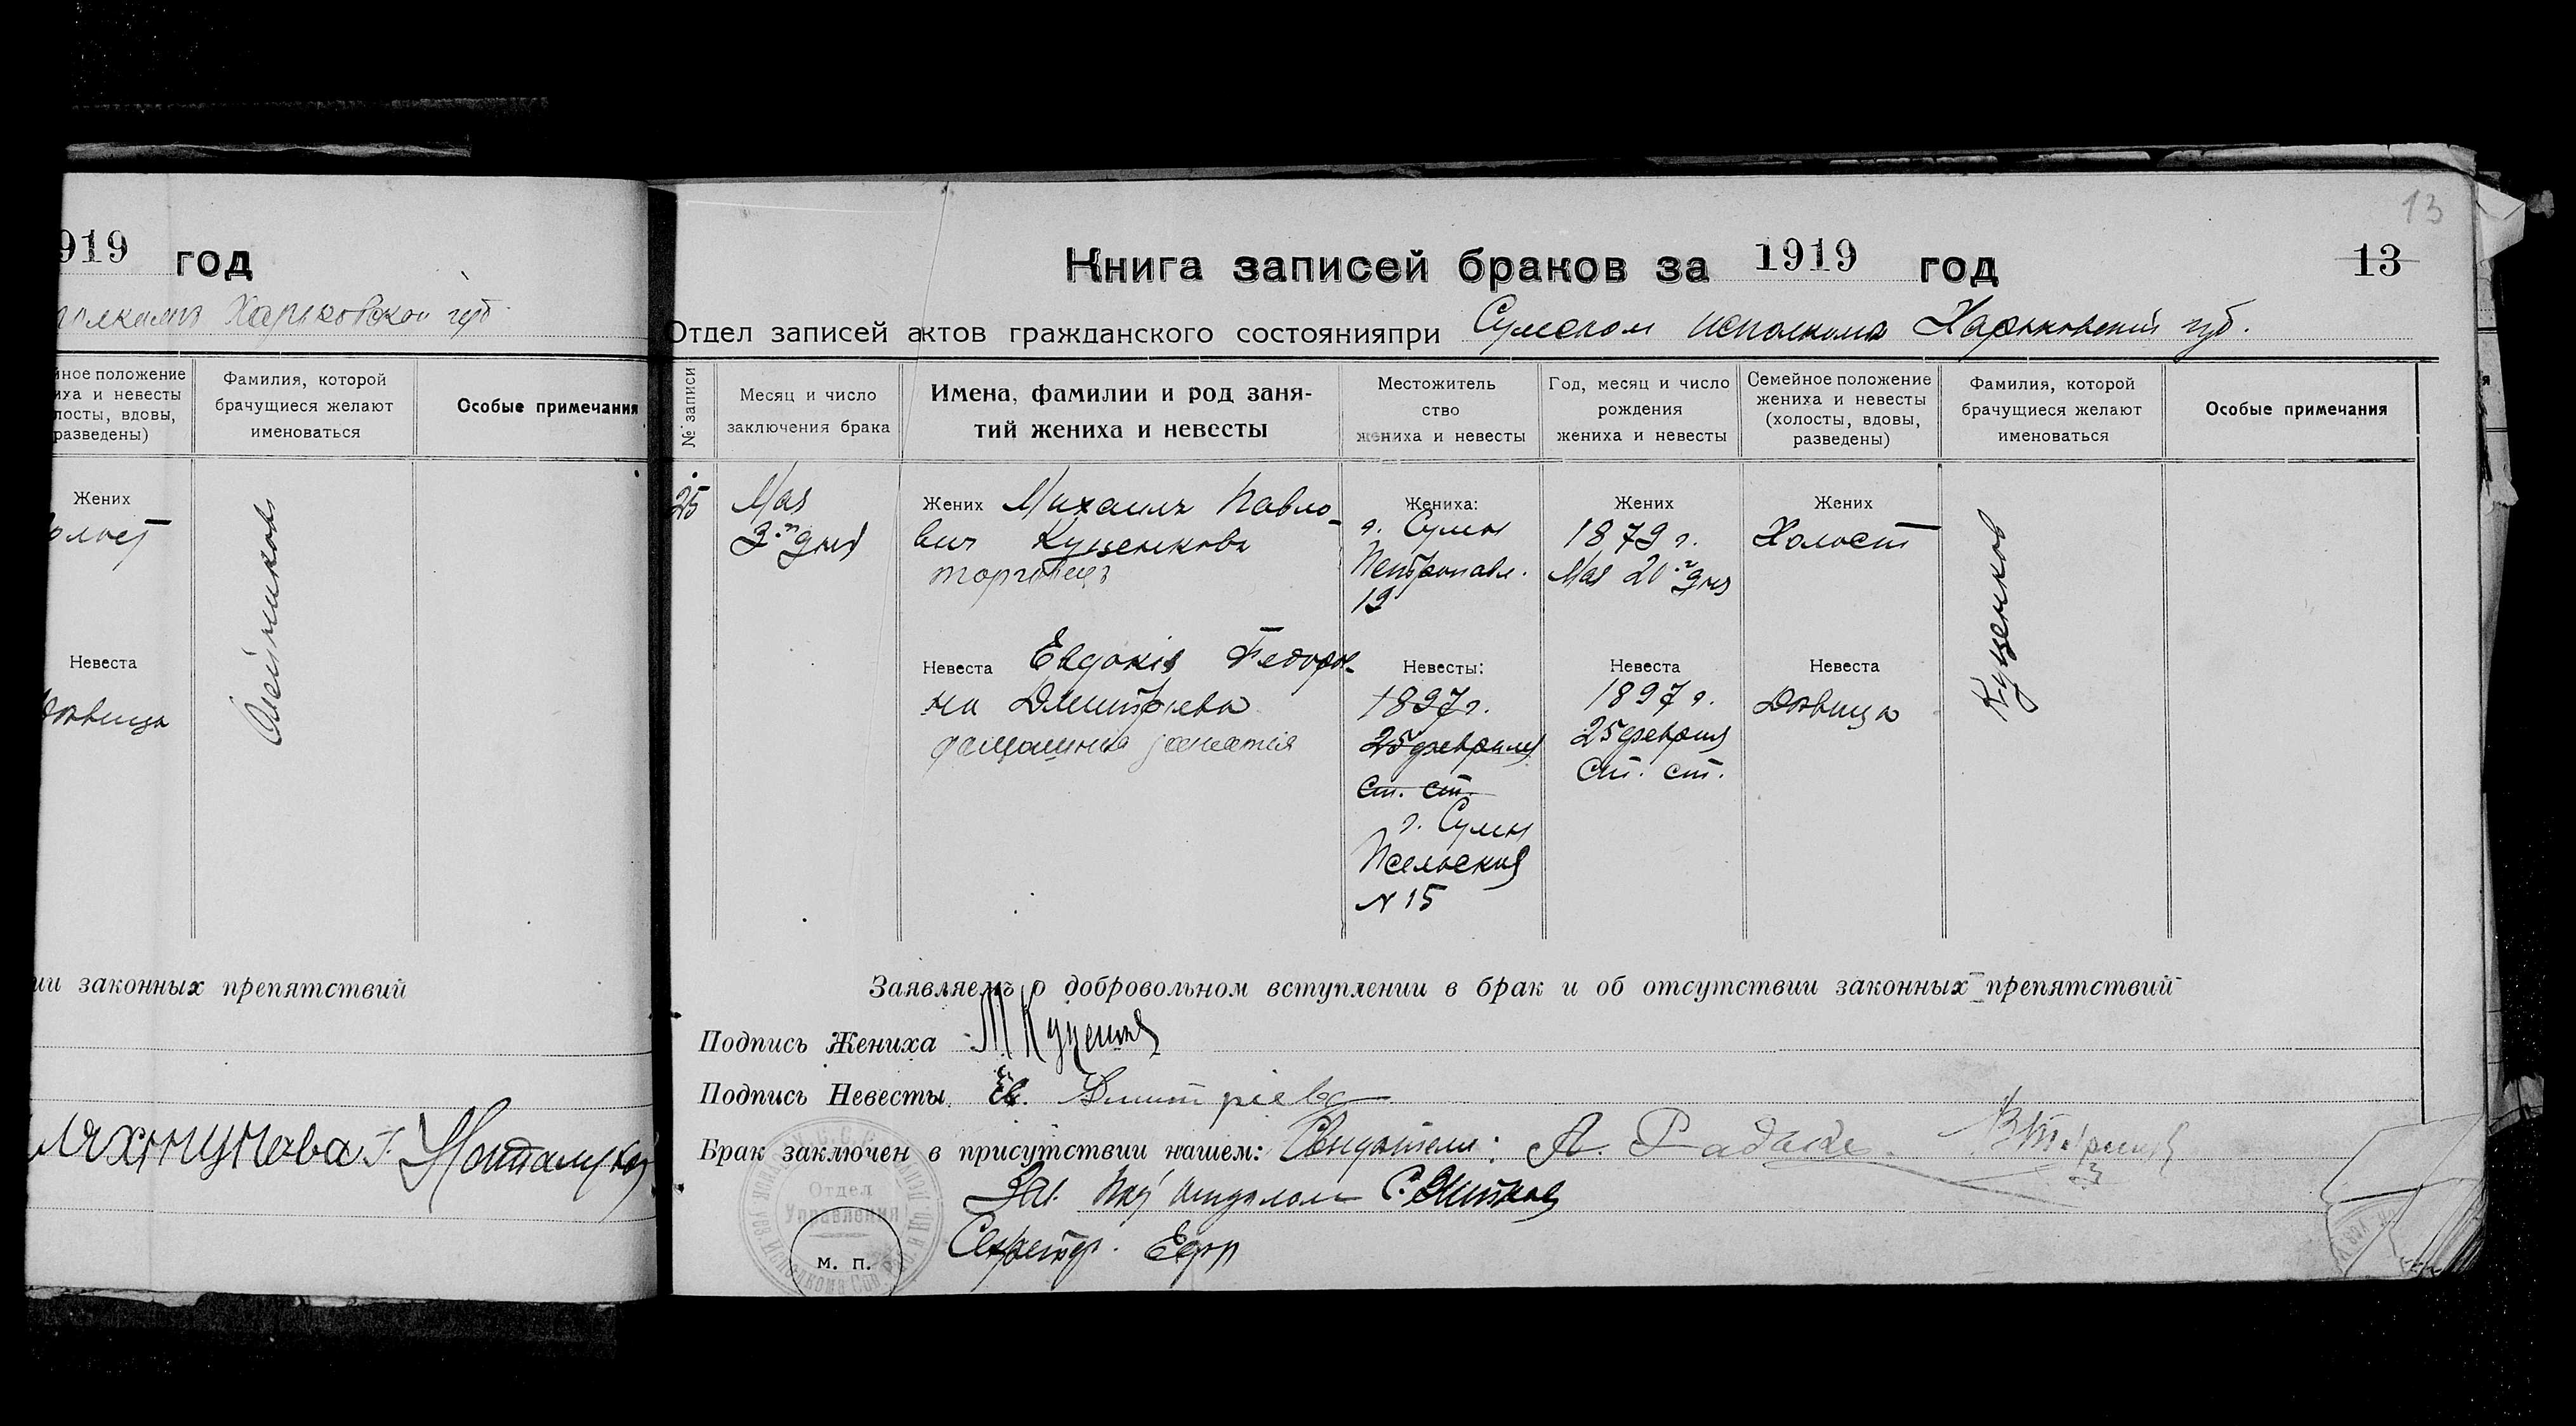 919 год
Харьковской губ.
ное положение
иха и невесты
лосты, вдовы,
разведены)
Фамилия, которой
брачущиеся желают
именоваться
Особые примечания
Жених
Невеста
ии законных препятствий
13
Книга записей браков за 1919 год
13
Отдел записей актов гражданского состоянияпри Сумском исполкома Харьковской губ.
№ записи
Месяц и число
заключения брака
Имена, фамилии и род заня-
тий жениха и невесты
Местожитель
ство
жениха и невесты
Год, месяц и число
рождения
жениха и невесты
Семейное положение
жениха и невесты
(холосты, вдовы,
разведены)
Фамилия, которой
брачущиеся желают
именоваться
Особые примечания
25
Мая
3.го дня
Жених Михаилъ Павло-
вич Куценковъ
торговецъ
Невеста Евдокія Федоров-
на Дмитріева
домашнія занятія
Жениха:
г. Сумы
Петропавл.
19
Невесты:
1897 г.
25 февраля
ст. ст.
г. Сумы
Псельская
N 15
Жених
1879 г.
Мая 20.го дня
Невеста
1897 г.
25 февраля
ст. ст.
Жених
Холост
Невеста
Дѣвица
Куценков
Заявляемъ о добровольном вступлении в брак и об отсутствии законных препятствий
Подпись Жениха М Куценков
Подпись Невесты Ев. Дмитріева
Брак заключен в присутствии нашем: Свидетели: А.
Зав. Под отделом С.
Секретарь
Отдел
Управления
м. п.